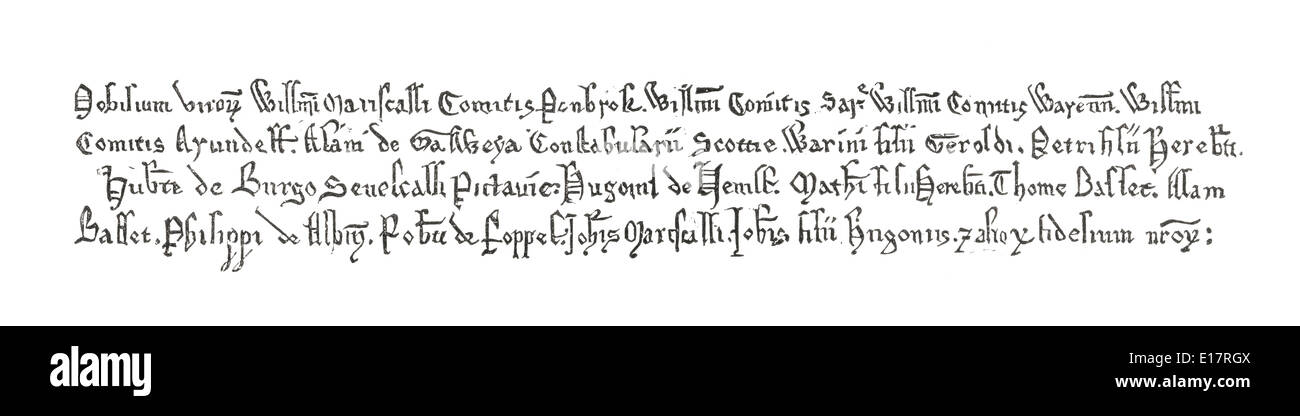 Nobilium viroꝝ Willmi Mariscalli Comitis Penbrok. Willmi Comitis Sarꝛ Willmi Comitis Warenn. Willmi
Comitis Arundell. Alani de Galweya Constabularii Scottie. Warini filii Geroldi. Petri filii Hereb̄ti.
Hub̄ti de Burgo Senescalli Pictavie. Hugonis de Nevill. Mathi filii Hereb̄ti. Thome Basset. Alani
Basset. Philippi de Albiñ. Rob̄ti de Roppel. Joh̄is Mariscalli. Joh̄is filii Hugonis. ⁊ alioꝝ fidelium nr̄oꝝ:
alamy
Image ID: E17RGX
www.alamy.com